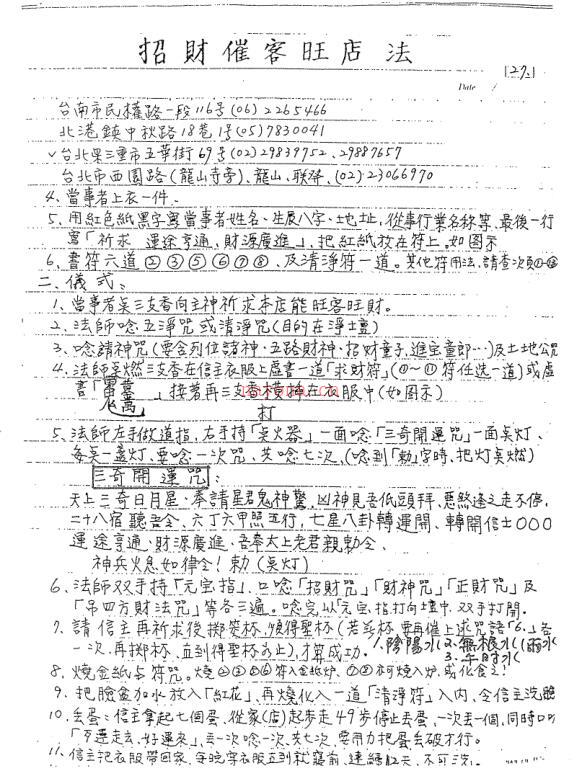 招財催客旺店法
Date
台南市民權路一段116号(06)2265466
北港鎮中秋路18巷1号(05)7830041
台北果三重市五華街67号(02)29839752、29887657
台北市西園路(龍山寺旁)、龍山、聯 (02)23066970
4、當事者上衣一件、
5、用紅色紙黑字寫當事者姓名、生辰八字、土地址,從事行業名称等、最後一行
寫「祈求 運途亨通、財源廣進」、把紅紙放在符上。如图示
6、書符六道②③⑤⑥⑦⑧、及清淨符一道。其他符用法、請查次頁
二、儀式:
1、當事者吳三支香向主神祈求本店能旺客旺財。
2、法師唸五淨咒或清淨咒(目的在淨土壇)
3、唸請神咒(要含列位諸神·五路財神·招財童子、進宝童郎…)及土地公咒
4、法師吳燃三支香在信主衣服上虛書一道「求財符」(①~⑪符任选一道)或虛
書 接著再三支香橫 在衣服中(如图示)
打
5、法師左手做道指,右手持「吳火器」一面唸「三奇開運咒」一面吳灯、
每吳一盞灯、要唸一次咒、共唸七次、(唸到「勅」字時、把灯吳燃)
三奇開運咒:
天上三奇日月星、奉請星君鬼神驚、凶神見吾低頭拜、惡煞逢之走不停、
二十八宿聽吾令、六丁六甲照五行,七星八卦轉運開、轉開信士○○○
運途亨通、財源廣進、吾奉太上老君親勅令、
神兵火急如律令!勅(吳灯)
6、法師双手持「元宝指」、口唸「招財咒」「財神咒」「正財咒」及
「吊四方財法咒」等各三遍。唸完以元宝指打向土壇中、双手打開.
7、請信主再祈求後擲筊杯、須得聖杯(若 杯、要再催上求咒語「6.」各
一次、再擲杯、直到得聖杯為止)、才算成功。
1.陰陽水(2.無根水(雨水
3.午時水(
8、燒金紙与符咒。燒 符入金紙炉、 可燒入炉、或化食之!
9、把臉盆加水放入「紅花」、再燒化入一道「清淨符」入内、令信主洗臉
10、丢蛋:信主拿起七個蛋、從家(店)起步走49步停止丢蛋、一次丢一個、同時口唸
「歹運走去、好運來」、丢一次唸一次、共七次、要用力把蛋丢破才行。
11、信主把衣服帶回家、每晚穿衣服五到就寢前、連續12天、不可洗。